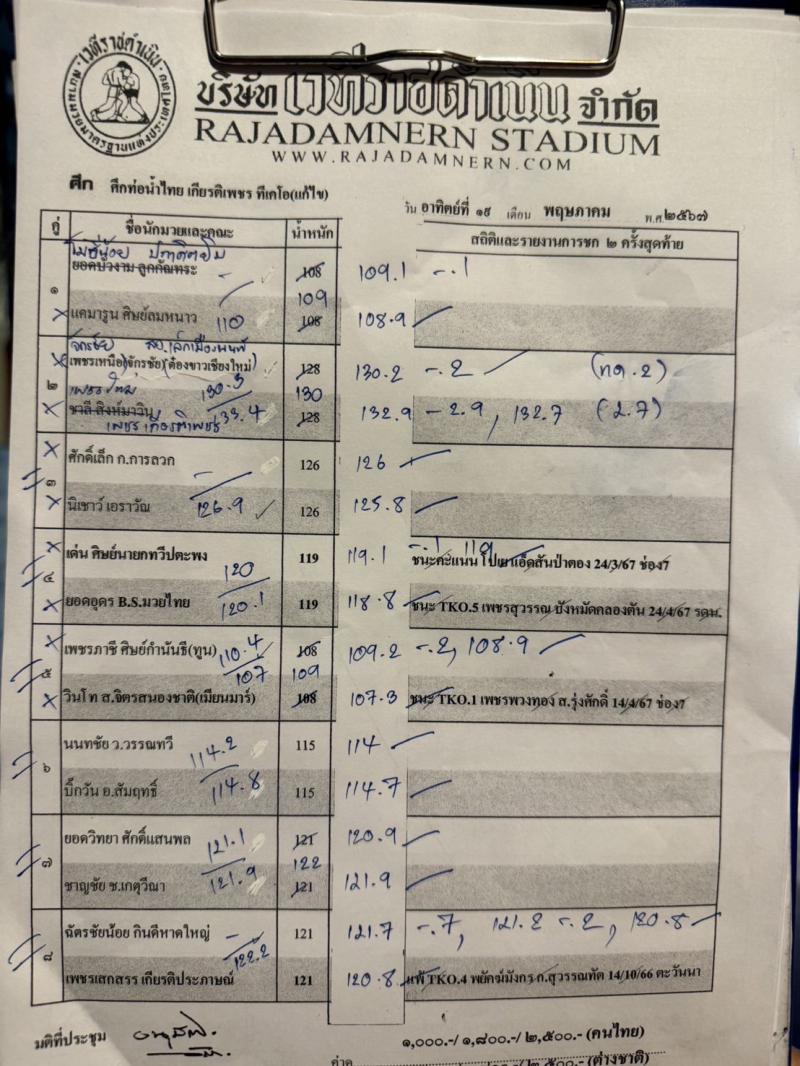 เวทีราชดำเนิน
บริษัท เวทีราชดำเนิน จำกัด
RAJADAMNERN STADIUM
WWW.RAJADAMNERN.COM
ศึก ศึกท่อน้ำไทย เกียรติเพชร ทีเคโอ(แก้ไข)
วัน อาทิตย์ที่ ๑๙ เดือน พฤษภาคม พ.ศ.๒๕๖๗
คู่ ชื่อนักมวยและคณะ น้ำหนัก สถิติและรายงานการชก ๒ ครั้งสุดท้าย
108 109.1 -.1
๑ 109
แคมารูน ศิษย์ลมหนาว 110 108 108.9
เพชรเหนือ(จักรชัย)(ต้องขาวเชียงใหม่) 128 130.2 -.2 (ทด.2)
๒ เพชรใหม่ 130.3 130
ชาลี สิงห์มาวิน 133.4 128 132.9 -2.9, 132.7 (2.7)
เพชรเกียรติเพชร
ศักดิ์เล็ก ก.การลวก 126 126
๓
นิเชาว์ เอราวัณ 126.9 126 125.8
เด่น ศิษย์นายกทวีปตะพง 120 119 119.1 -.1 119 ชนะคะแนน โปเยเอ็ดสันป่าตอง 24/3/67 ช่อง7
๔
ยอดอุดร B.S.มวยไทย 120.1 119 118.8 ชนะ TKO.5 เพชรสุวรรณ บังหมัดคลองตัน 24/4/67 รดน.
เพชรภาชี ศิษย์กำนันธี(ทูน) 110.4 108 109.2 -.2, 108.9
๕ 107 109
วินโท ส.จิตรสนองชาติ(เมียนมาร์) 108 107.3 ชนะ TKO.1 เพชรพวงทอง ส.รุ่งศักดิ์ 14/4/67 ช่อง7
นนทชัย ว.วรรณทวี 114.2 115 114
๖
บิ๊กวัน อ.สัมฤทธิ์ 114.8 115 114.7
ยอดวิทยา ศักดิ์แสนพล 121.1 121 120.9
๗ 122
ชาญชัย ช.เกตุวีณา 121.9 121 121.9
ฉัตรชัยน้อย กินดีหาดใหญ่ - 121 121.7 -.7, 121.2 -.2, 120.8
๘ 122.2
เพชรเสกสรร เกียรติประภาษณ์ 121 120.8 แพ้ TKO.4 พยัคฆ์มังกร ก.สุวรรณทัต 14/10/66 ตะวันนา
มติที่ประชุม
๑,๐๐๐.-/ ๑,๘๐๐.-/ ๒,๕๐๐.- (คนไทย)
๒,๕๐๐.- (ต่างชาติ)